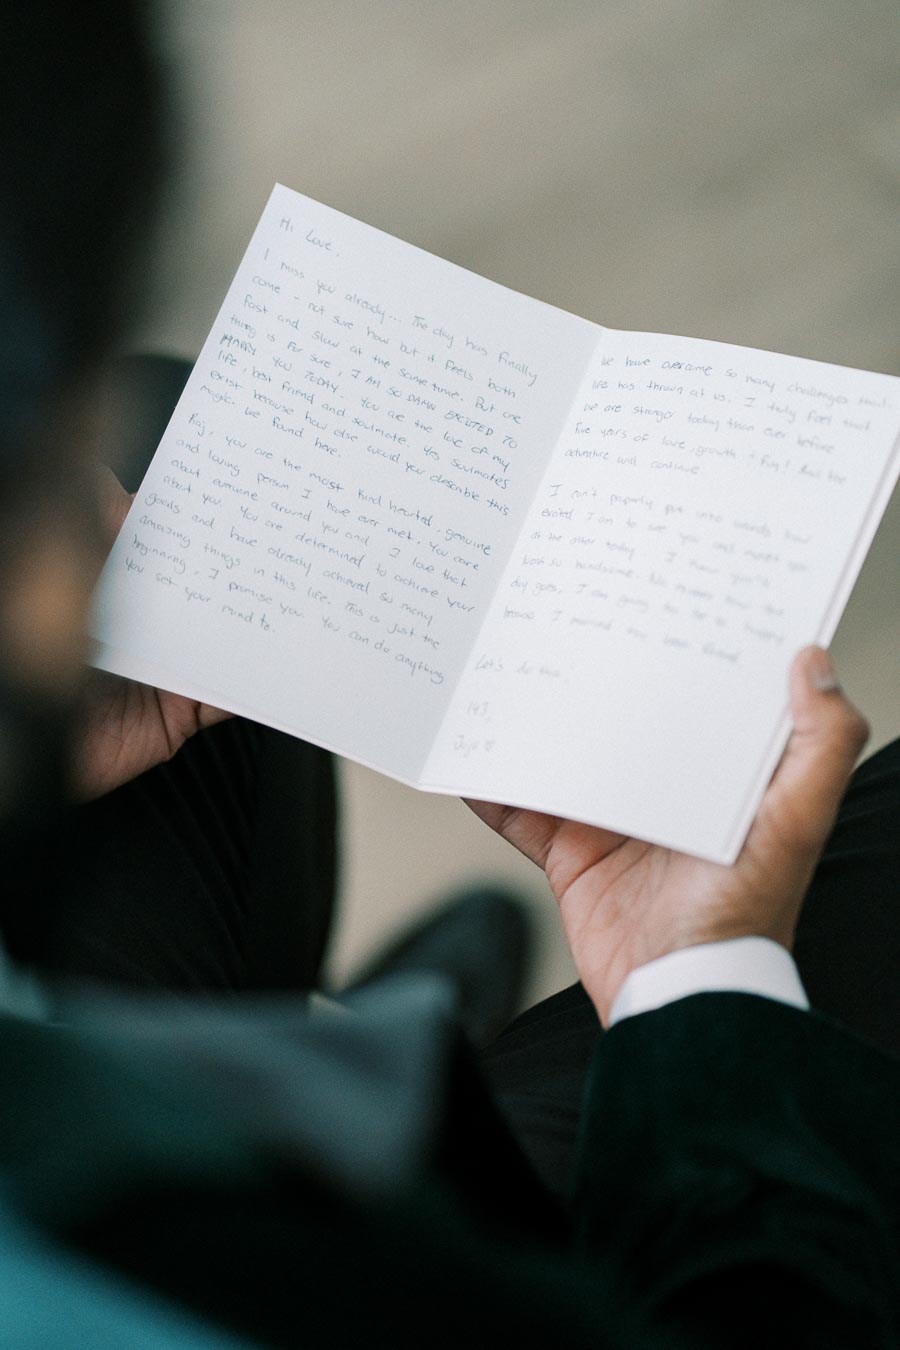 Hi Love,
I miss you already... The day has finally
come - not sure how but it feels both
fast and slow at the same time. But one
thing is for sure, I AM SO DAMN EXCITED TO
MARRY YOU TODAY. You are the love of my
life, best friend and soulmate. Yes soulmates
exist because how else would you describe this
magic we found here.
Raj, you are the most kind hearted, genuine
and loving person I have ever met. You care
about everyone around you and I love that
about you. You are determined to achieve your
goals and have already achieved so many
amazing things in this life. This is just the
beginning, I promise you. You can do anything
you set your mind to.
We have overcome so many challenges that
life has thrown at us. I truly feel that
we are stronger today than ever before.
five years of love, growth + fun! And the
adventure will continue
I can't properly put into words how
excited I am to see you and meet you
at the alter today. I know you'll
look so handsome. No matter how the
day goes, I am going to be so happy
because I married my best friend
Let's do this.
143,